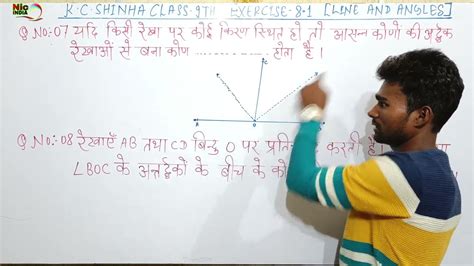 Nic
INDIA
K.C.SHINHA CLASS-9TH EXERCISE-8.1 [LINE AND ANGLES]
Q No:-07 यदि किसी रेखा पर कोई किरण स्थित हो तो आसन्न कोणों की अर्द्धक
रेखाओं से बना कोण ............... होता है।
C
A O B
Q No:-08 रेखाएँ AB तथा CD बिन्दु O पर करती
∠BOC के अर्न्तर्द्धकों के बीच के